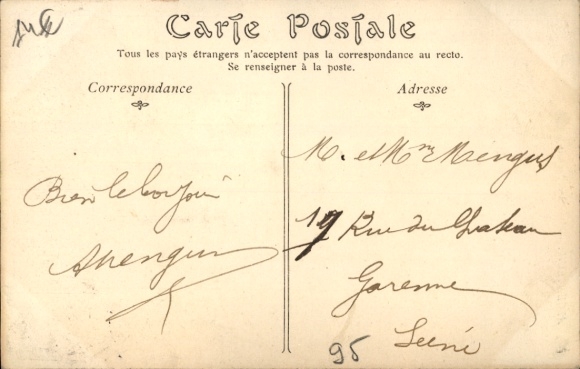 Carte Postale
Tous les pays étrangers n'acceptent pas la correspondance au recto.
Se renseigner à la poste.
Correspondance
Adresse
Bien le bonjour
AMengus
M. et Mme Mengus
19 Rue du Chateau
Garenne
Seine
95